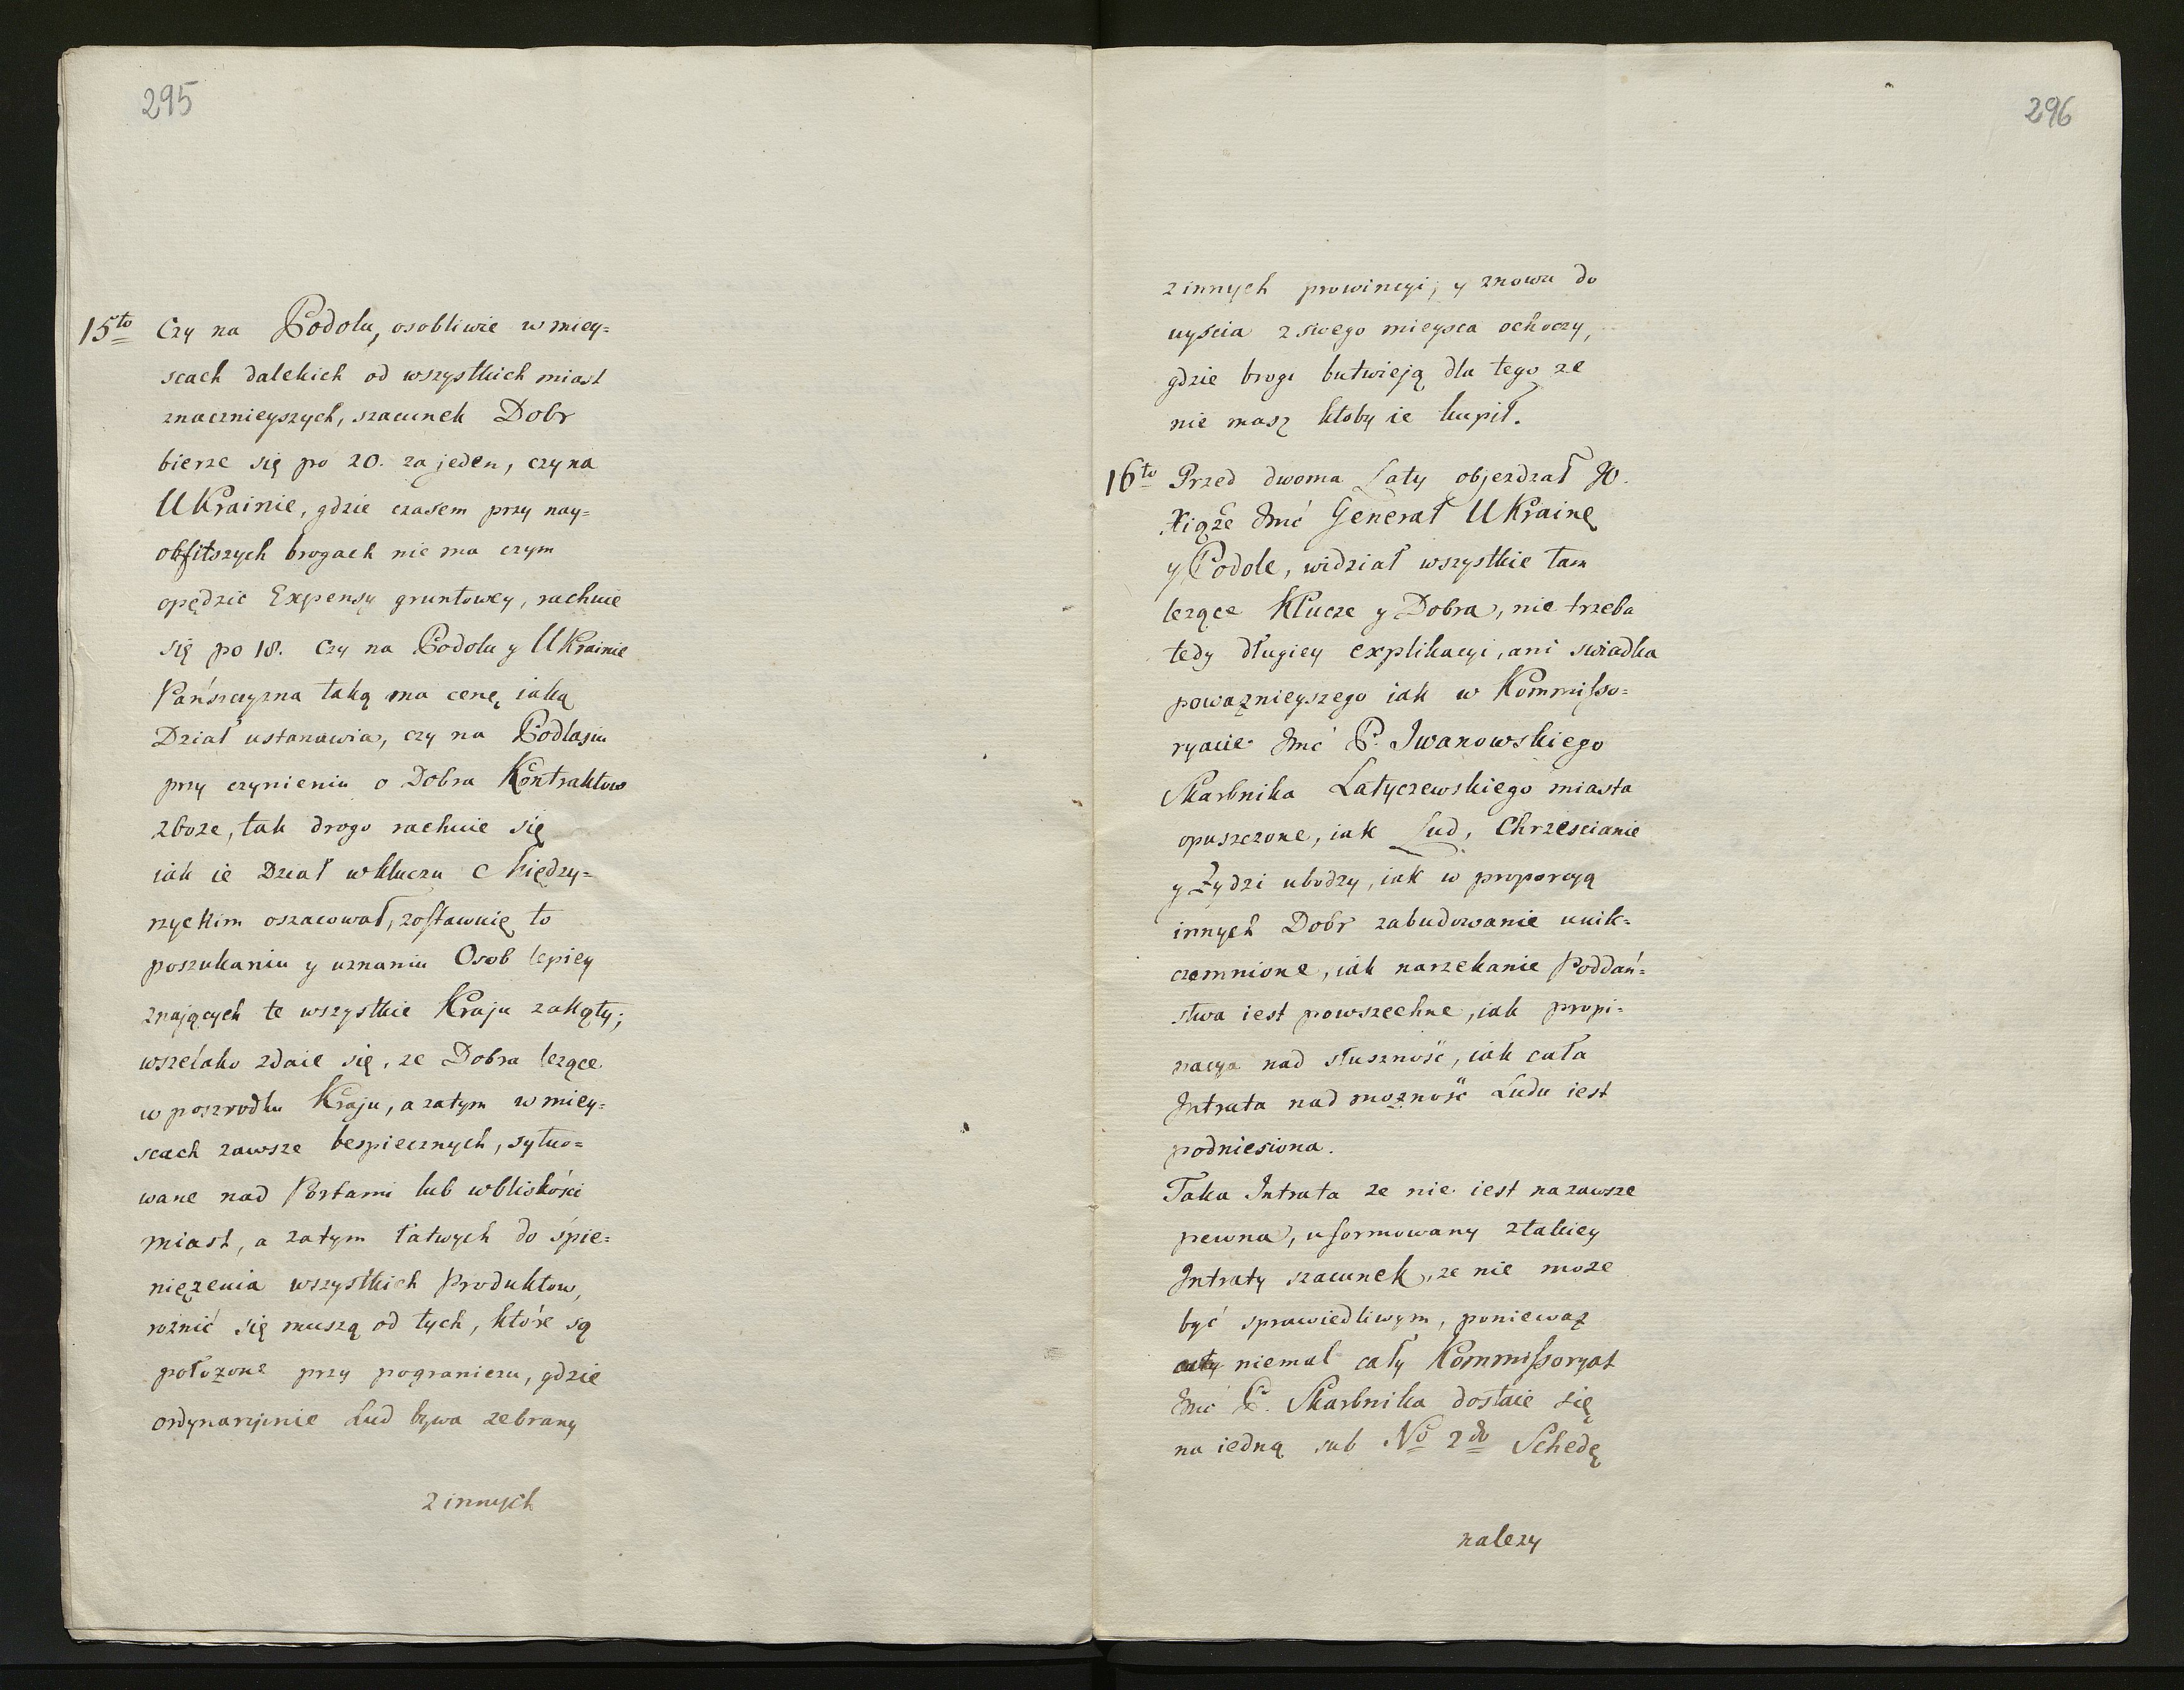 295
15to Czy na Podolu, osobliwie w miey=
scach dalekich od wszystkich miast
znacznieyszych, szacunek Dobr
bierze się po 20. za jeden, czy na
UKrainie, gdzie czasem przy nay=
obfitszych brogach nie ma czym
opędzic Expensy gruntowey, rachuie
się po 18. Czy na Podolu y UKrainie
Pańszczyzna taką ma cenę, iaką
Dział ustanawia, czy na Podlasiu
przy czynieniu o Dobra Kontraktow
zboze, tak drogo rachuie się
iak ie Dział w kluczu Między=
rzyckim oszacował, zostawuię to
poszukaniu y uznaniu Osob lepiey
znających te wszystkie Kraju zakąty;
wszelako zdaie się, ze Dobra lezące
w poszrodku Kraju, a zatym w miey=
scach zawsze bespiecznych, sytuo=
wane nad Portami lub w bliskości
miast, a zatym łatwych do śpie=
niężenia wszystkich Produktow,
roznić się muszą od tych, które są
położone przy pograniczu, gdzie
ordynaryinie Lud bywa zebrany
z innych
296
z innych prowincyi; y znowu do
uyścia z swego mieysca ochoczy,
gdzie brogi butwieją dla tego ze
nie masz ktoby ie kupił.
16to Przed dwoma Laty objezdzał JO.
Xiąże Jmć Generał UKrainę
y Podole, widział wszystkie tam
lezące Klucze y Dobra, nie trzeba
tedy długiey explikacyi, ani swiadka
poważnieyszego iak w Kommisso=
ryacie Jmć P. Iwanowskiego
Skarbnika Latyczewskiego miasta
opuszczone, iak Lud, Chrzescianie
y Żydzi ubodzy, iak w proporcyą
innych Dobr zabudowanie unik=
czemnione, iak narzekanie Poddań=
stwa iest powszechne, iak propi=
nacya nad słuszność, iak cała
Intrata nad możność Ludu iest
podniesiona.
Taka Intrata ze nie iest na zawsze
pewna, uformowany z takiey
Intraty szacunek, ze nie moze
być sprawiedliwym, ponieważ
cały niemal cały Kommissoryat
Jmć P. Skarbnika dostaie się
na iedną sub No 2do Schedę
nalezy